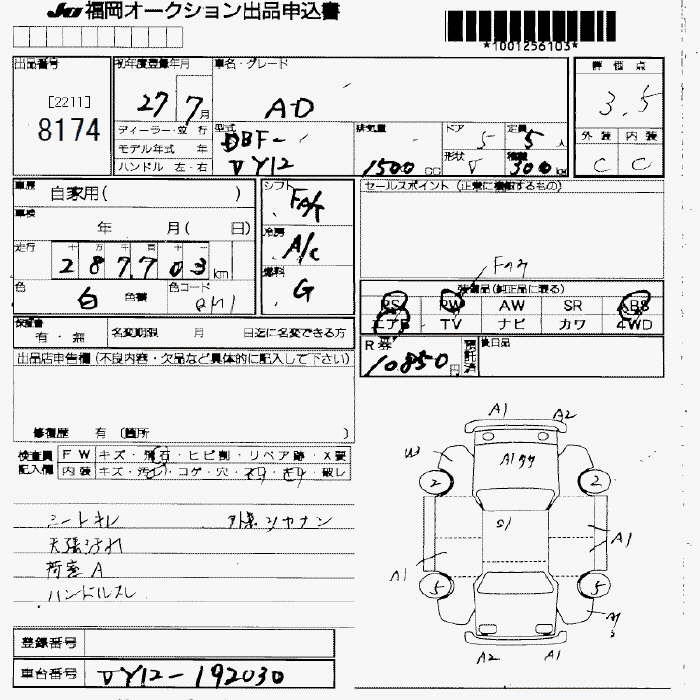 JU 福岡オークション出品申込書
*1001256103*
出品番号
[2211]
8174
初年度登録年月
27 7月
車名・グレード
AD
ディーラー・並行
モデル年式 年
ハンドル 左・右
型式
DBF-
VY12
排気量
1500 CC
ドア
5
定員
5人
形状
V
積載
300 kg
評価点
3.5
外装 内装
C C
車歴
自家用( )
車検
年 月( 日)
走行
十 万 千 百 十 一
287703 km
色
白 色替
色コード
QM1
シフト
FA/T
冷房
A/C
燃料
G
セールスポイント (正常に機能するもの)
装備品(純正品に限る)
PS PW AW SR ABS
エアB TV ナビ カワ 4WD
保証書
有・無
名変期限 月 日迄に名変できる方
R券
10850円
預託済
後日品
出品店申告欄 (不良内容・欠品など具体的に記入して下さい)
修復歴 有 (箇所 )
検査員記入欄
FW キズ・飛石・ヒビ割・リペア跡・X要
内装 キズ・汚れ・コゲ・穴・スリ・キレ・破レ
シートキレ
天張汚れ
荷室 A
ハンドルスレ
A1 A2
W
A1
2 2
S1
A1
A1
5 5
A2 A1
登録番号
車台番号 VY12-192030